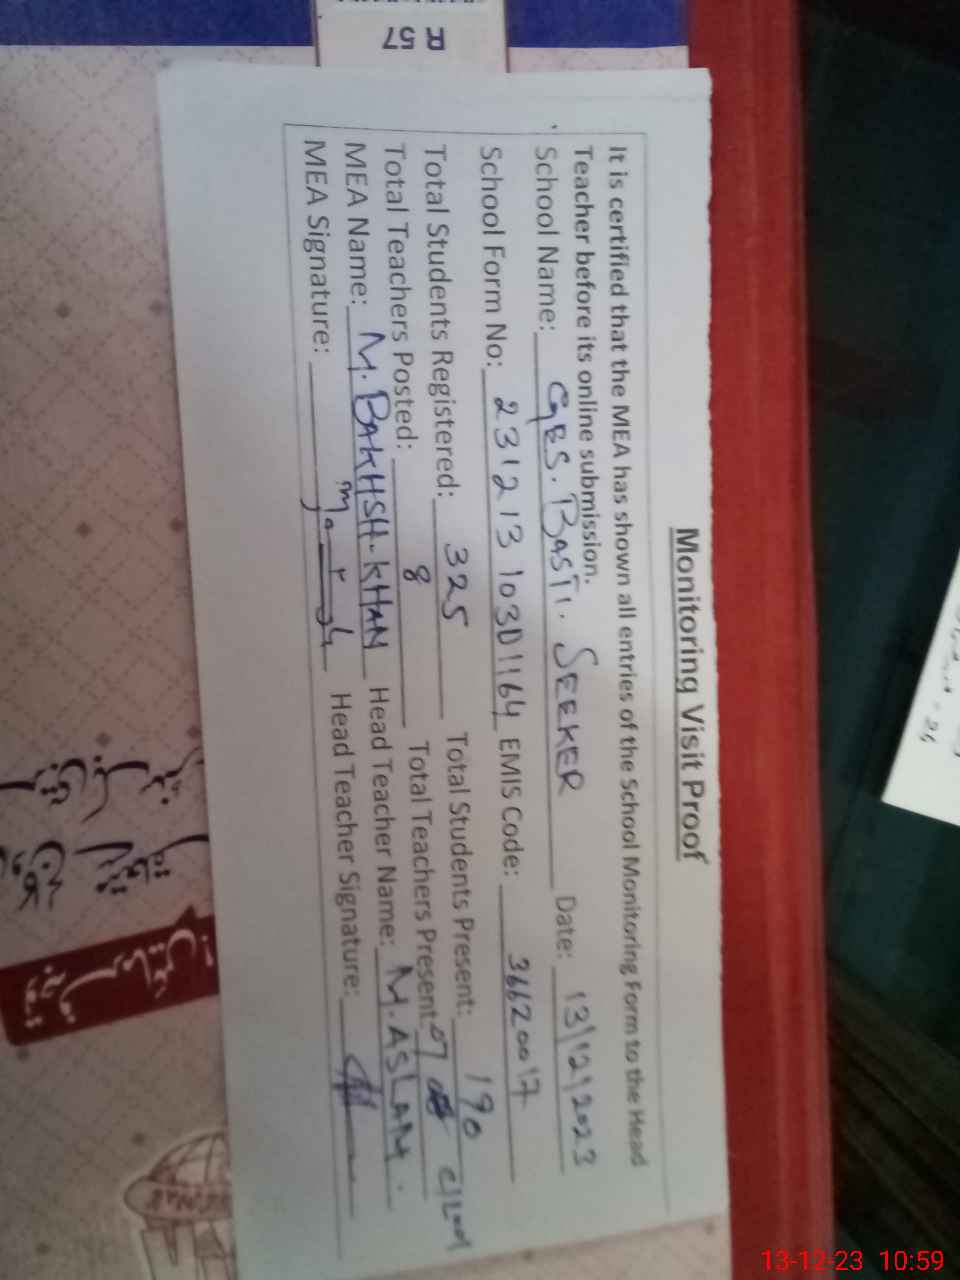 Monitoring Visit Proof
It is certified that the MEA has shown all entries of the School Monitoring Form to the Head
Teacher before its online submission.
School Name: GBS. BASTI. SEEKER Date: 13/12/2023
School Form No: 23121310301164 EMIS Code: 36620017
Total Students Registered: 325 Total Students Present: 190
Total Teachers Posted: 8 Total Teachers Present: 07
MEA Name: M. BAKHSH. KHAN Head Teacher Name: M. ASLAM.
MEA Signature: Head Teacher Signature:
R
57
13-12-23 10:59